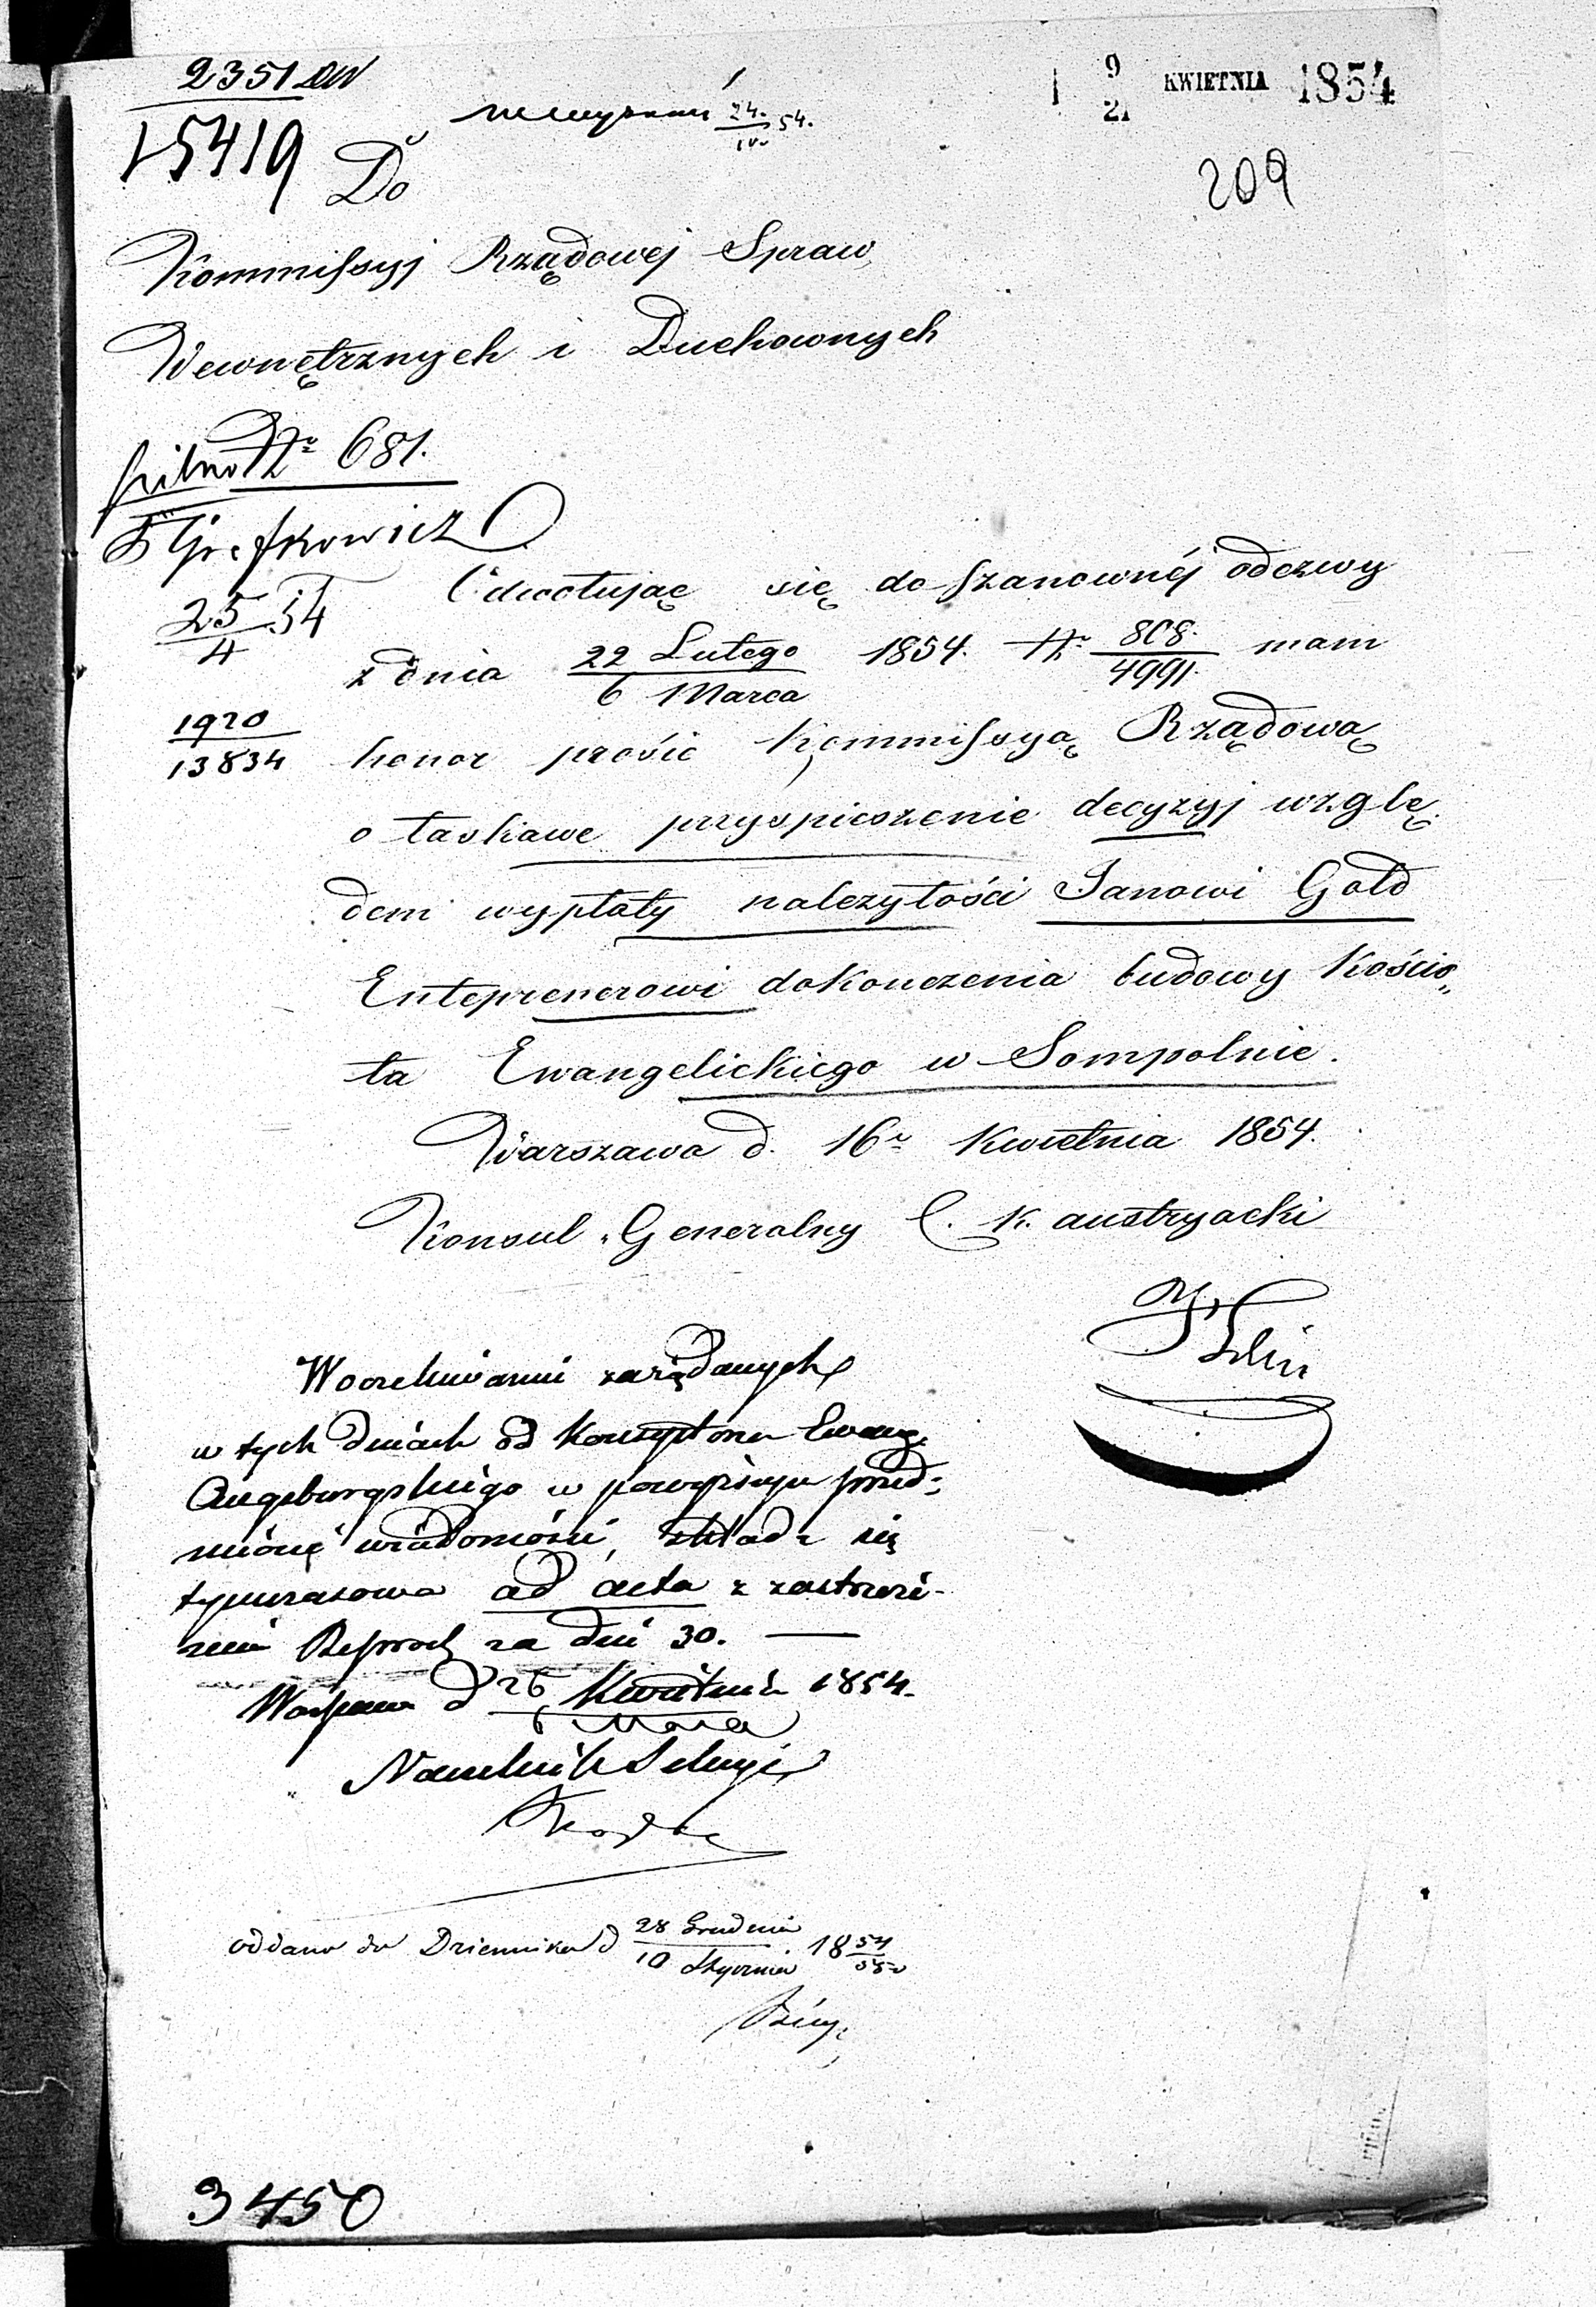 2351 DW
15419
24./IV. 54.
9/21 KWIETNIA 1854
209
Do
Kommissyj Rządowej Spraw
Wewnętrznych i Duchownych
pilno Nr 681.
25/4 54
Odwołując się do szanownéj odezwy
z dnia 22 Lutego/6 Marca 1854. Nr 808./4991. mam
1920/13834
honor prosić Kommissyą Rządową
o łaskawe przyspieszenie decyzyj wzglę-
dem wypłaty należytości Janowi Gold
Enteprenerowi dokończenia budowy Kościo„
ła Ewangelickiego w Sompolnie.
Warszawa d. 16go Kwietnia 1854.
Konsul Generalny C. K. austryacki
W oczekiwaniu zażądanych
w tych dniach od Konsystorza Ewang.
Augsburgskiego w powyższym przed-
miocie wiadomości, składa się
tymczasowo ad acta z zastrzeże-
niem Reprod. za dni 30. —
Warszawa d 26 Kwietnia/6 Maja 1854.
Naczelnik Sekcyi
oddano do Dziennika d 28 Grudnia/10 Stycznia 18 54/55
3450